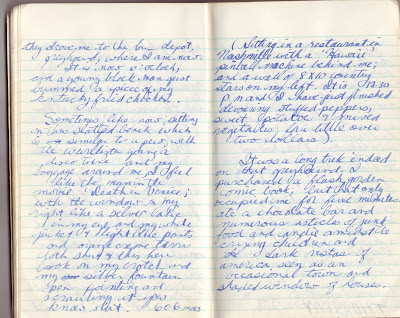 they drove me to the bus depot,
greyhound, where I am now.
It is now o'clock,
and a young black man just
bummed a piece of my
kentucky fried chicken.
Sometimes like now, sitting
in this slatted bench which
is similar to a pew, with
the Wurlitzer going a
disco tune and my
luggage around me, I feel
like the man in the
movie Death in Venice;
with the windows on my
right like a silver lake
in my eye and my white
jacket & light blue pants
and orange crepe
cloth shirt & this here
book on my crotch and
my silver fountain
pen pointing and
scrawling it you
know what. 606 mas.
(Sitting in a restaurant in
Nashville with a "Hawaii"
pinball machine behind me,
and a wall of 8x10 country
stars on my left. It is 12:30
P.M. and I have just finished
devouring stuffed peppers,
sweet potatoe & mixed
vegetables; for a little over
two dollars)
It was a long trek indeed
on that greyhound. I
purchased a flash gordon
comic book, but that only
occupied me for five minutes.
ate a chocolate bar and
numerous articles of junk
food and candie amidst the
crying children and
the dark vistas of
america, seen as an
occasional town and
shaped window of houses.